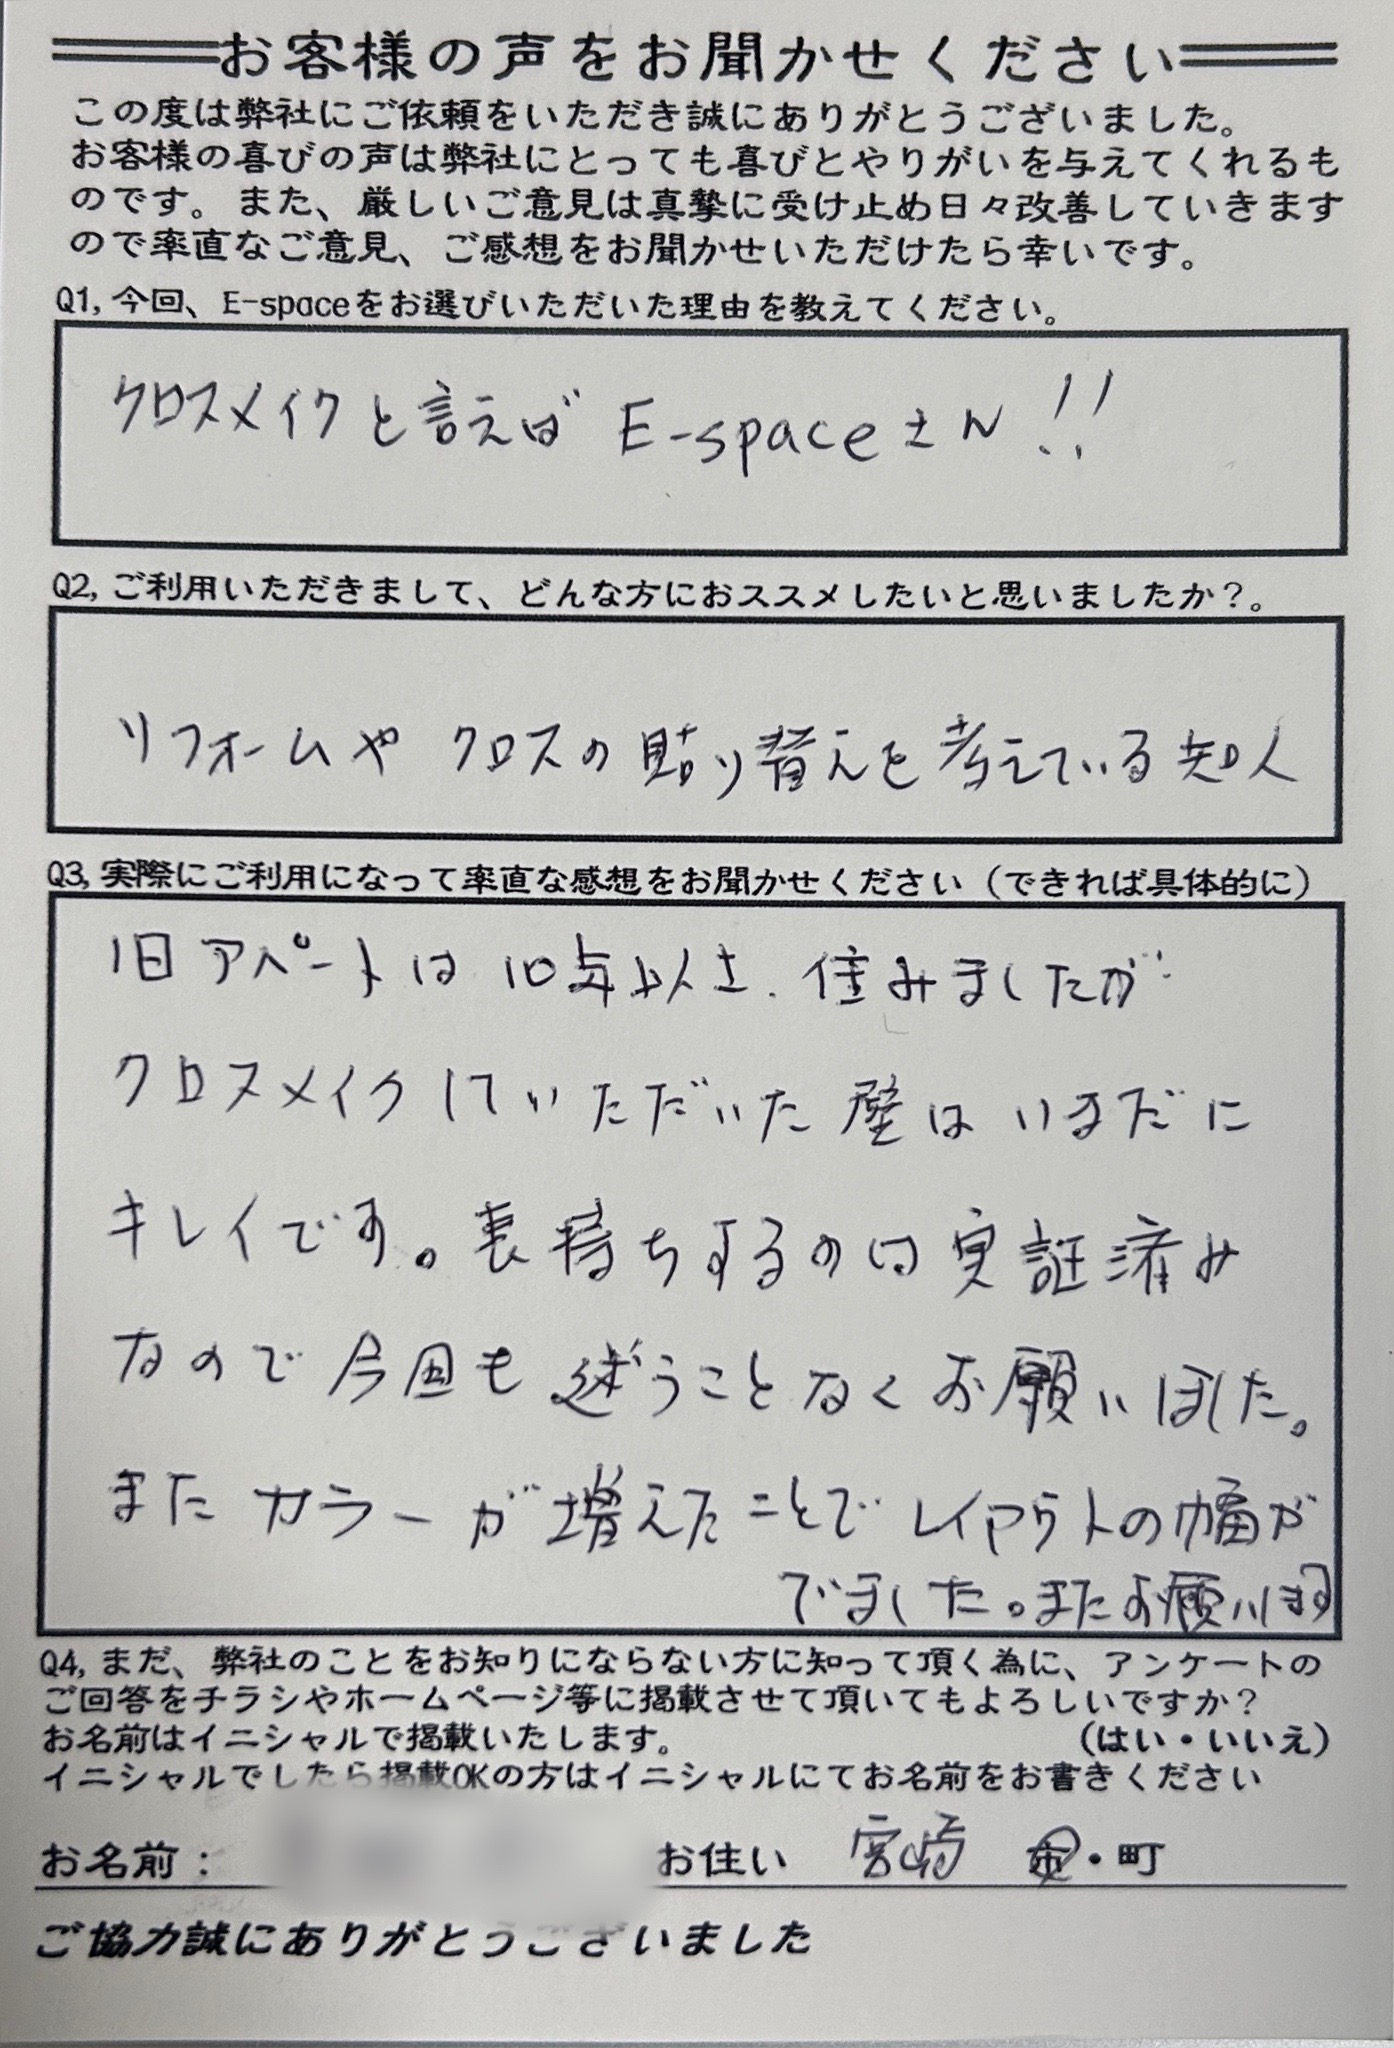 お客様の声をお聞かせください
この度は弊社にご依頼をいただき誠にありがとうございました。
お客様の喜びの声は弊社にとっても喜びとやりがいを与えてくれるも
のです。また、厳しいご意見は真摯に受け止め日々改善していきます
ので率直なご意見、ご感想をお聞かせいただけたら幸いです。
Q1, 今回、E-spaceをお選びいただいた理由を教えてください。
クロスメイクと言えば E-spaceさん!!
Q2, ご利用いただきまして、どんな方におススメしたいと思いましたか?。
リフォームや クロスの貼り替えを考えている知人
Q3, 実際にご利用になって率直な感想をお聞かせください(できれば具体的に)
旧アパートは10年以上、住みましたが
クロスメイクしていただいた壁はいまだに
キレイです。長持ちするのは実証済み
なので今回も迷うことなくお願いしました。
またカラーが増えたことでレイアウトの幅が
でました。またお願いします
Q4, まだ、弊社のことをお知りにならない方に知って頂く為に、アンケートの
ご回答をチラシやホームページ等に掲載させて頂いてもよろしいですか?
お名前はイニシャルで掲載いたします。 (はい・いいえ)
イニシャルでしたら掲載OKの方はイニシャルにてお名前をお書きください
お名前: お住い 宮崎 市・町
ご協力誠にありがとうございました